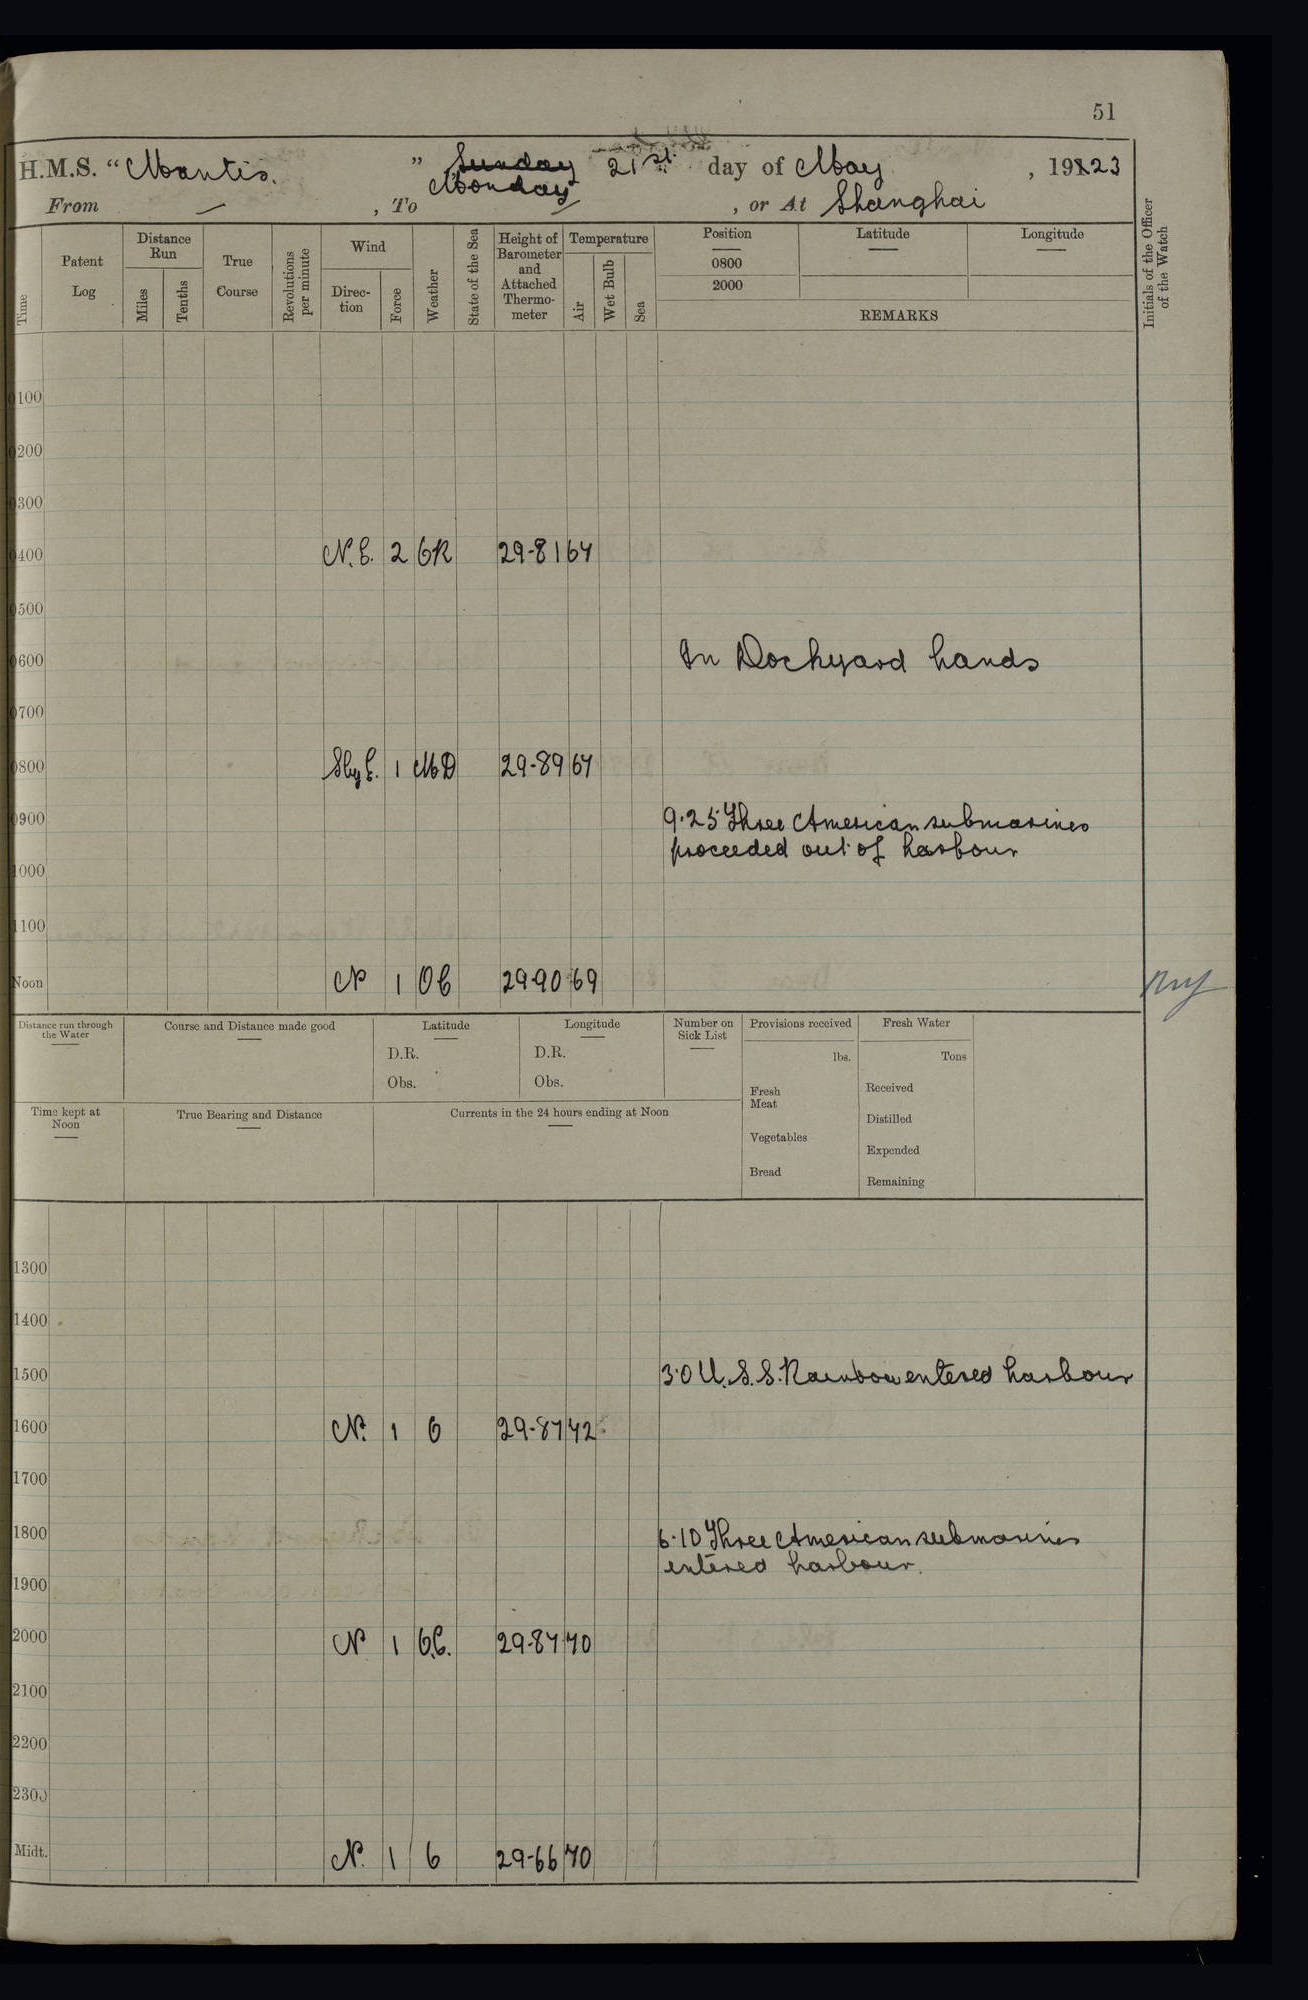 51
H.M.S. "Mantis." Sunday 21st day of May, 1923
Monday
From — , To — , or At Shanghai
Time
Patent Log
Distance Run
Miles
Tenths
True Course
Revolutions per minute
Wind
Direction
Force
Weather
State of the Sea
Height of Barometer and Attached Thermometer
Temperature
Air
Wet Bulb
Sea
Position
0800
2000
Latitude
Longitude
REMARKS
Initials of the Officer of the Watch
0100
0200
0300
0400 N.E. 2 OR 29-81 64
0500
0600 In Dockyard hands
0700
0800 SbyE. 1 MD 29-89 67
0900 9.25 Three American submarines
proceeded out of harbour
1000
1100
Noon N 1 OC 29-90 69
Distance run through the Water
Course and Distance made good
Latitude
D.R.
Obs.
Longitude
D.R.
Obs.
Number on Sick List
Provisions received
lbs.
Fresh Meat
Vegetables
Bread
Fresh Water
Tons
Received
Distilled
Expended
Remaining
Time kept at Noon
True Bearing and Distance
Currents in the 24 hours ending at Noon
1300
1400
1500 3.0 U.S.S. Rainbow entered harbour
1600 N. 1 O 29-87 72
1700
1800 6.10 Three American submarines
entered harbour.
1900
2000 N 1 O.C. 29-87 70
2100
2200
2300
Midt. N. 1 O 29-66 70